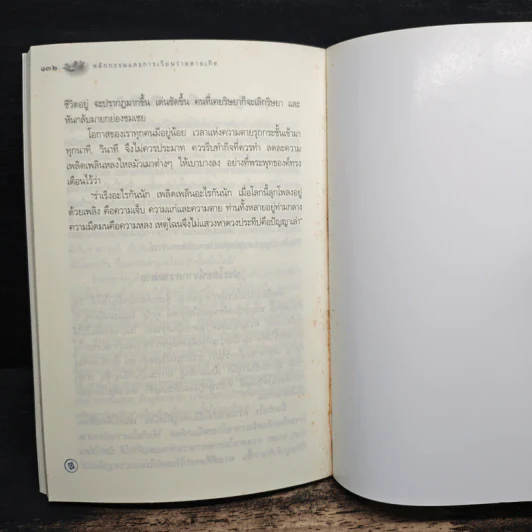 ๑๓๒ หลักกรรมและการเวียนว่ายตายเกิด
ชีวิตอยู่ จะปรากฏมากขึ้น เด่นชัดขึ้น คนที่เคยริษยาก็จะเลิกริษยา และ
หันกลับมายกย่องชมเชย
โอกาสของเราทุกคนมีอยู่น้อย เวลาแห่งความตายรุกกระชั้นเข้ามา
ทุกนาที วินาที จึงไม่ควรประมาท ควรรีบทำกิจที่ควรทำ ลดละความ
เพลิดเพลินหลงใหลมัวเมาต่างๆ ให้เบาบางลง อย่างที่พระพุทธองค์ทรง
เตือนไว้ว่า
"ร่าเริงอะไรกันนัก เพลิดเพลินอะไรกันนัก เมื่อโลกนี้ลุกโพลงอยู่
ด้วยเพลิง คือความเจ็บ ความแก่และความตาย ท่านทั้งหลายอยู่ท่ามกลาง
ความมืดมนคือความหลง เหตุไฉนจึงไม่แสวงหาดวงประทีปคือปัญญาเล่า"